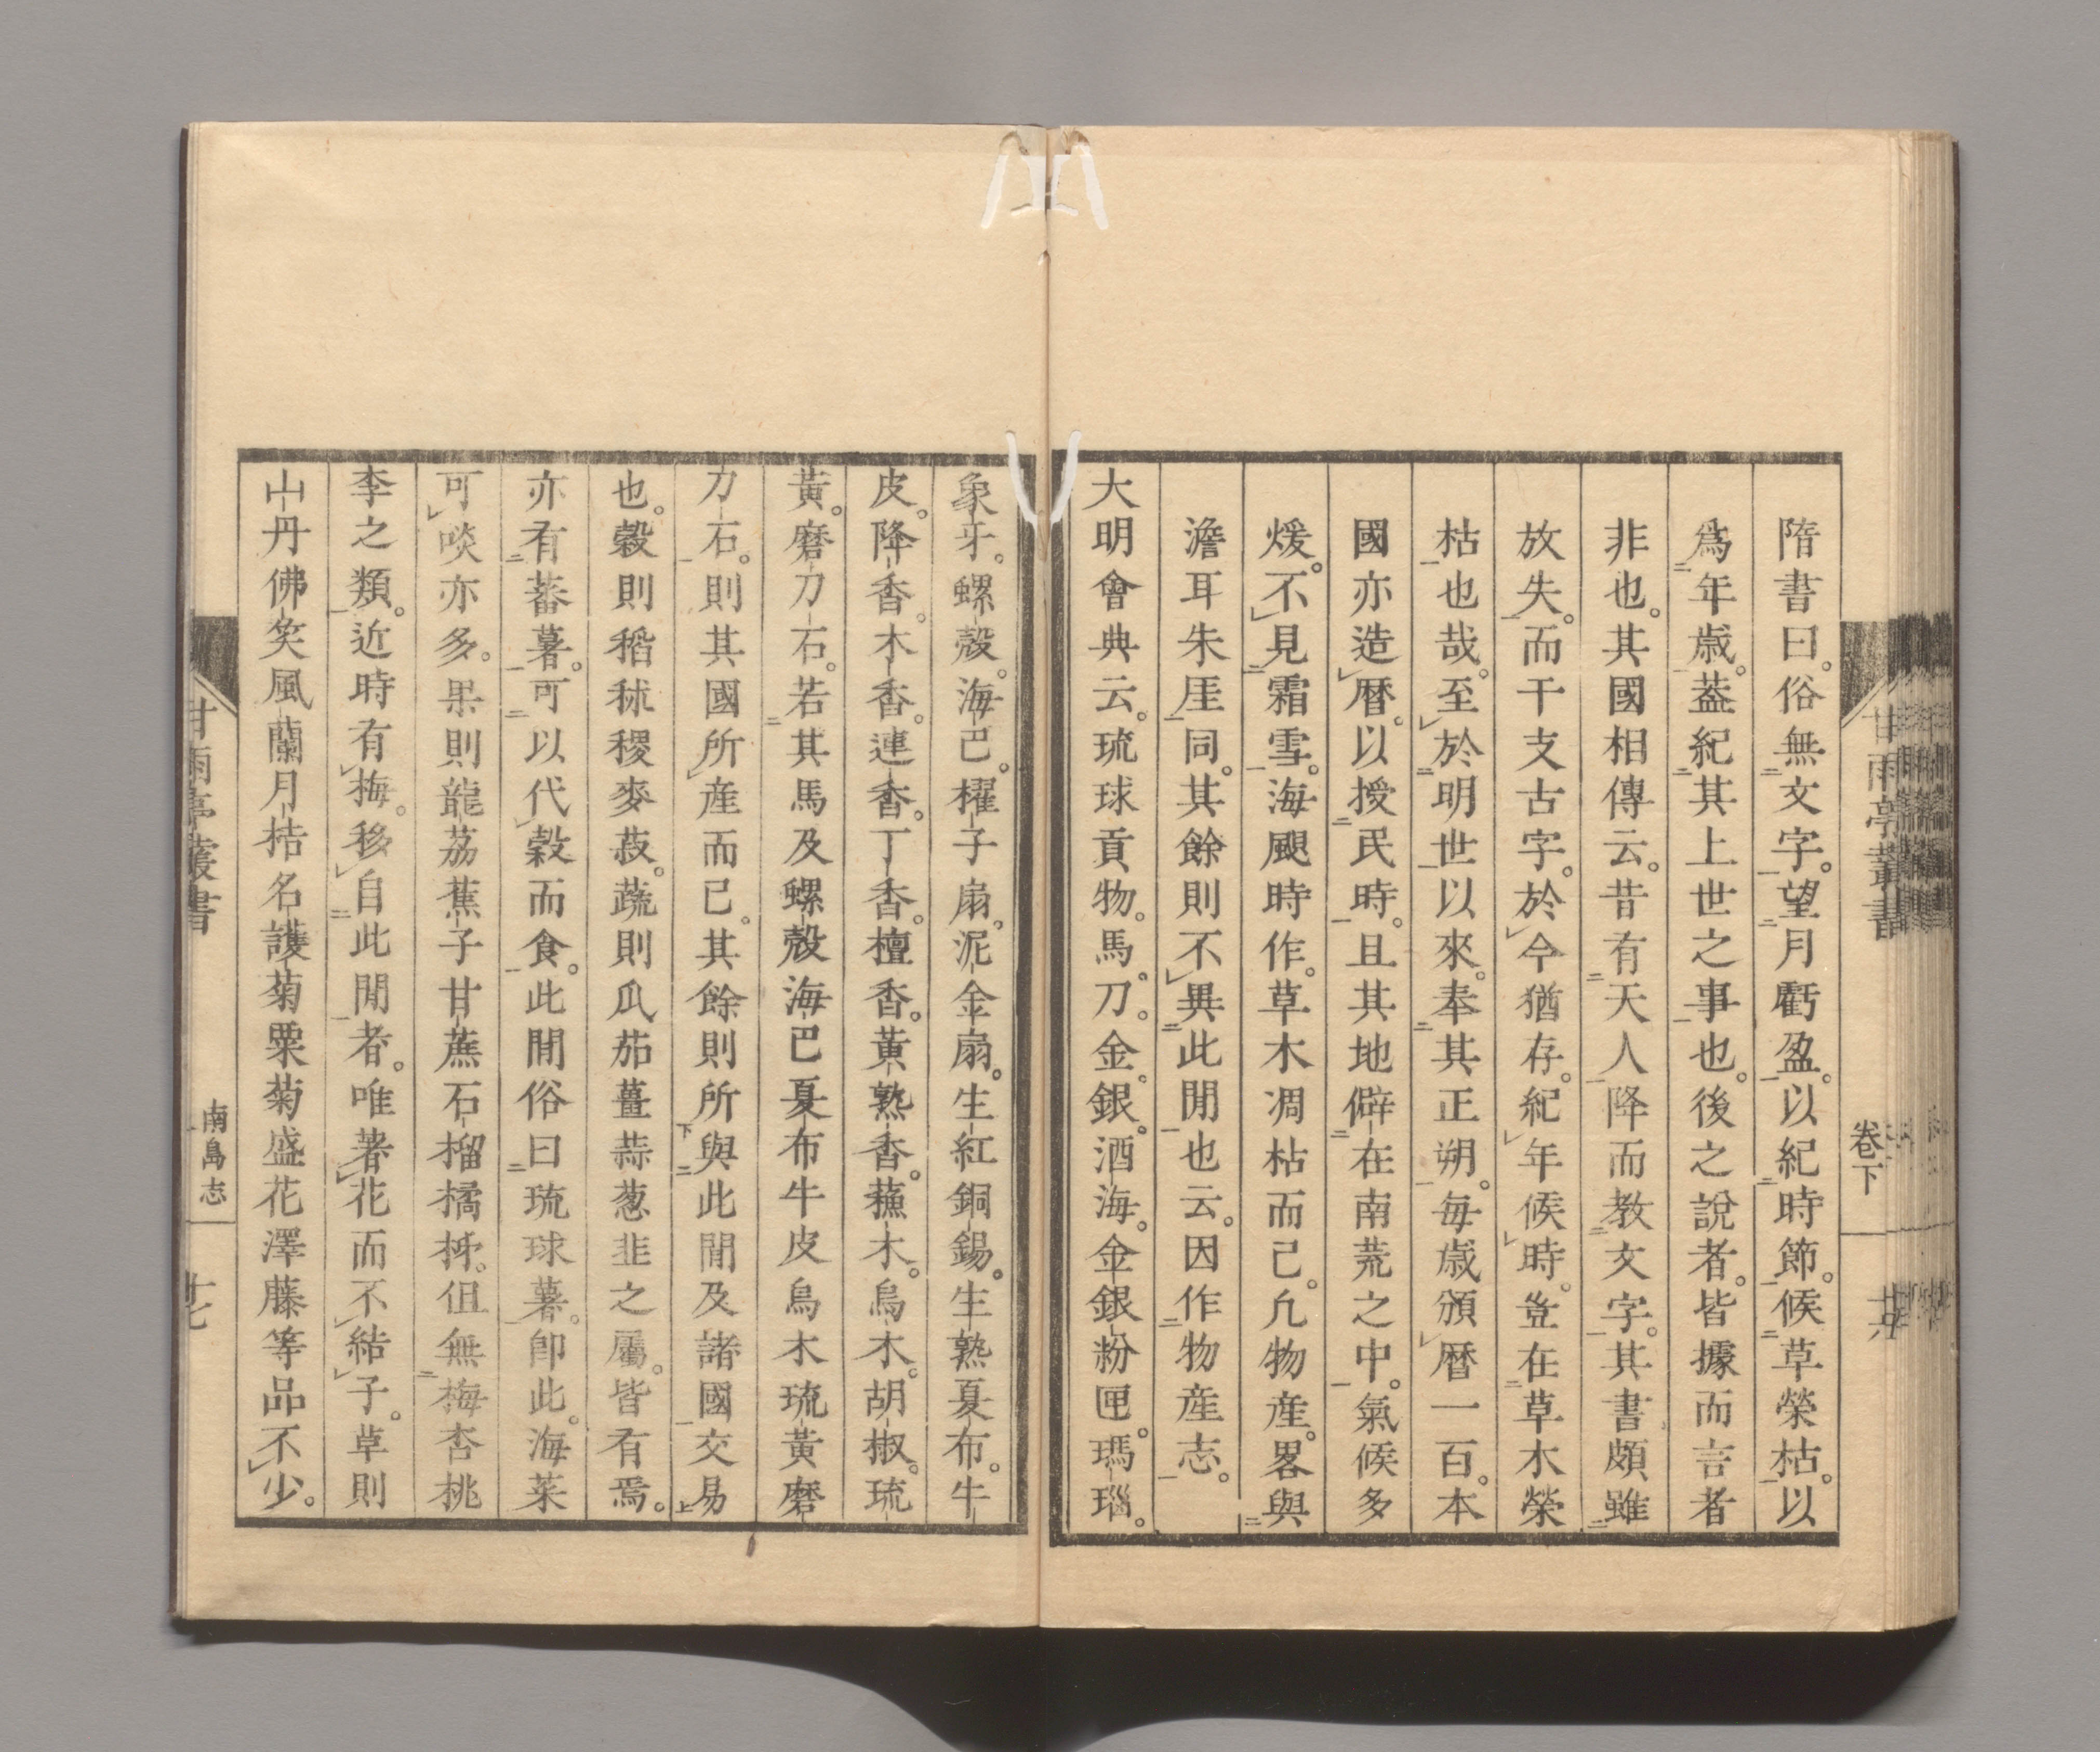 隋書曰。俗無文字。望月虧盈。以紀時節。候草榮枯。以
爲年歳。蓋紀其上世之事也。後之說者。皆據而言者
非也。其國相傳云。昔有天人降而教文字。其書頗雖
放失。而干支古字。於今猶存。紀年候時。豈在草木榮
枯也哉。至於明世以來。奉其正朔。毎歳頒暦一百。本
國亦造暦。以授民時。且其地僻在南荒之中。氣候多
煖。不見霜雪。海颶時作。草木凋枯而已。凡物產。畧與
澹耳朱厓同。其餘則不異此閒也云。因作物產志。
大明會典云。琉球貢物。馬。刀。金。銀。酒海。金銀粉匣。瑪瑙。
象牙。螺殼。海巴。櫂子扇。泥金扇。生紅銅錫。生熟夏布。牛
皮。降香。木香。連香。丁香。檀香。黃熟香。蘓木。烏木。胡椒。琉
黃。磨刀石。若其馬及螺殼海巴夏布牛皮烏木琉黃磨
刀石。則其國所產而已。其餘則所與此閒及諸國交易
也。穀則稻秫稷麥菽。蔬則瓜茄薑蒜葱韭之屬。皆有焉。
亦有蕃薯。可以代穀而食。此閒俗曰琉球薯。卽此。海菜
可啖亦多。果則龍荔蕉子甘蔗石榴橘柹。但無梅杏桃
李之類。近時有梅。移自此閒者。唯著花而不結子。草則
山丹佛桑風蘭月桔名護菊粟菊盛花澤藤等品不少。
甘雨亭叢書
卷下
十六
甘雨亭叢書
南島志
十七